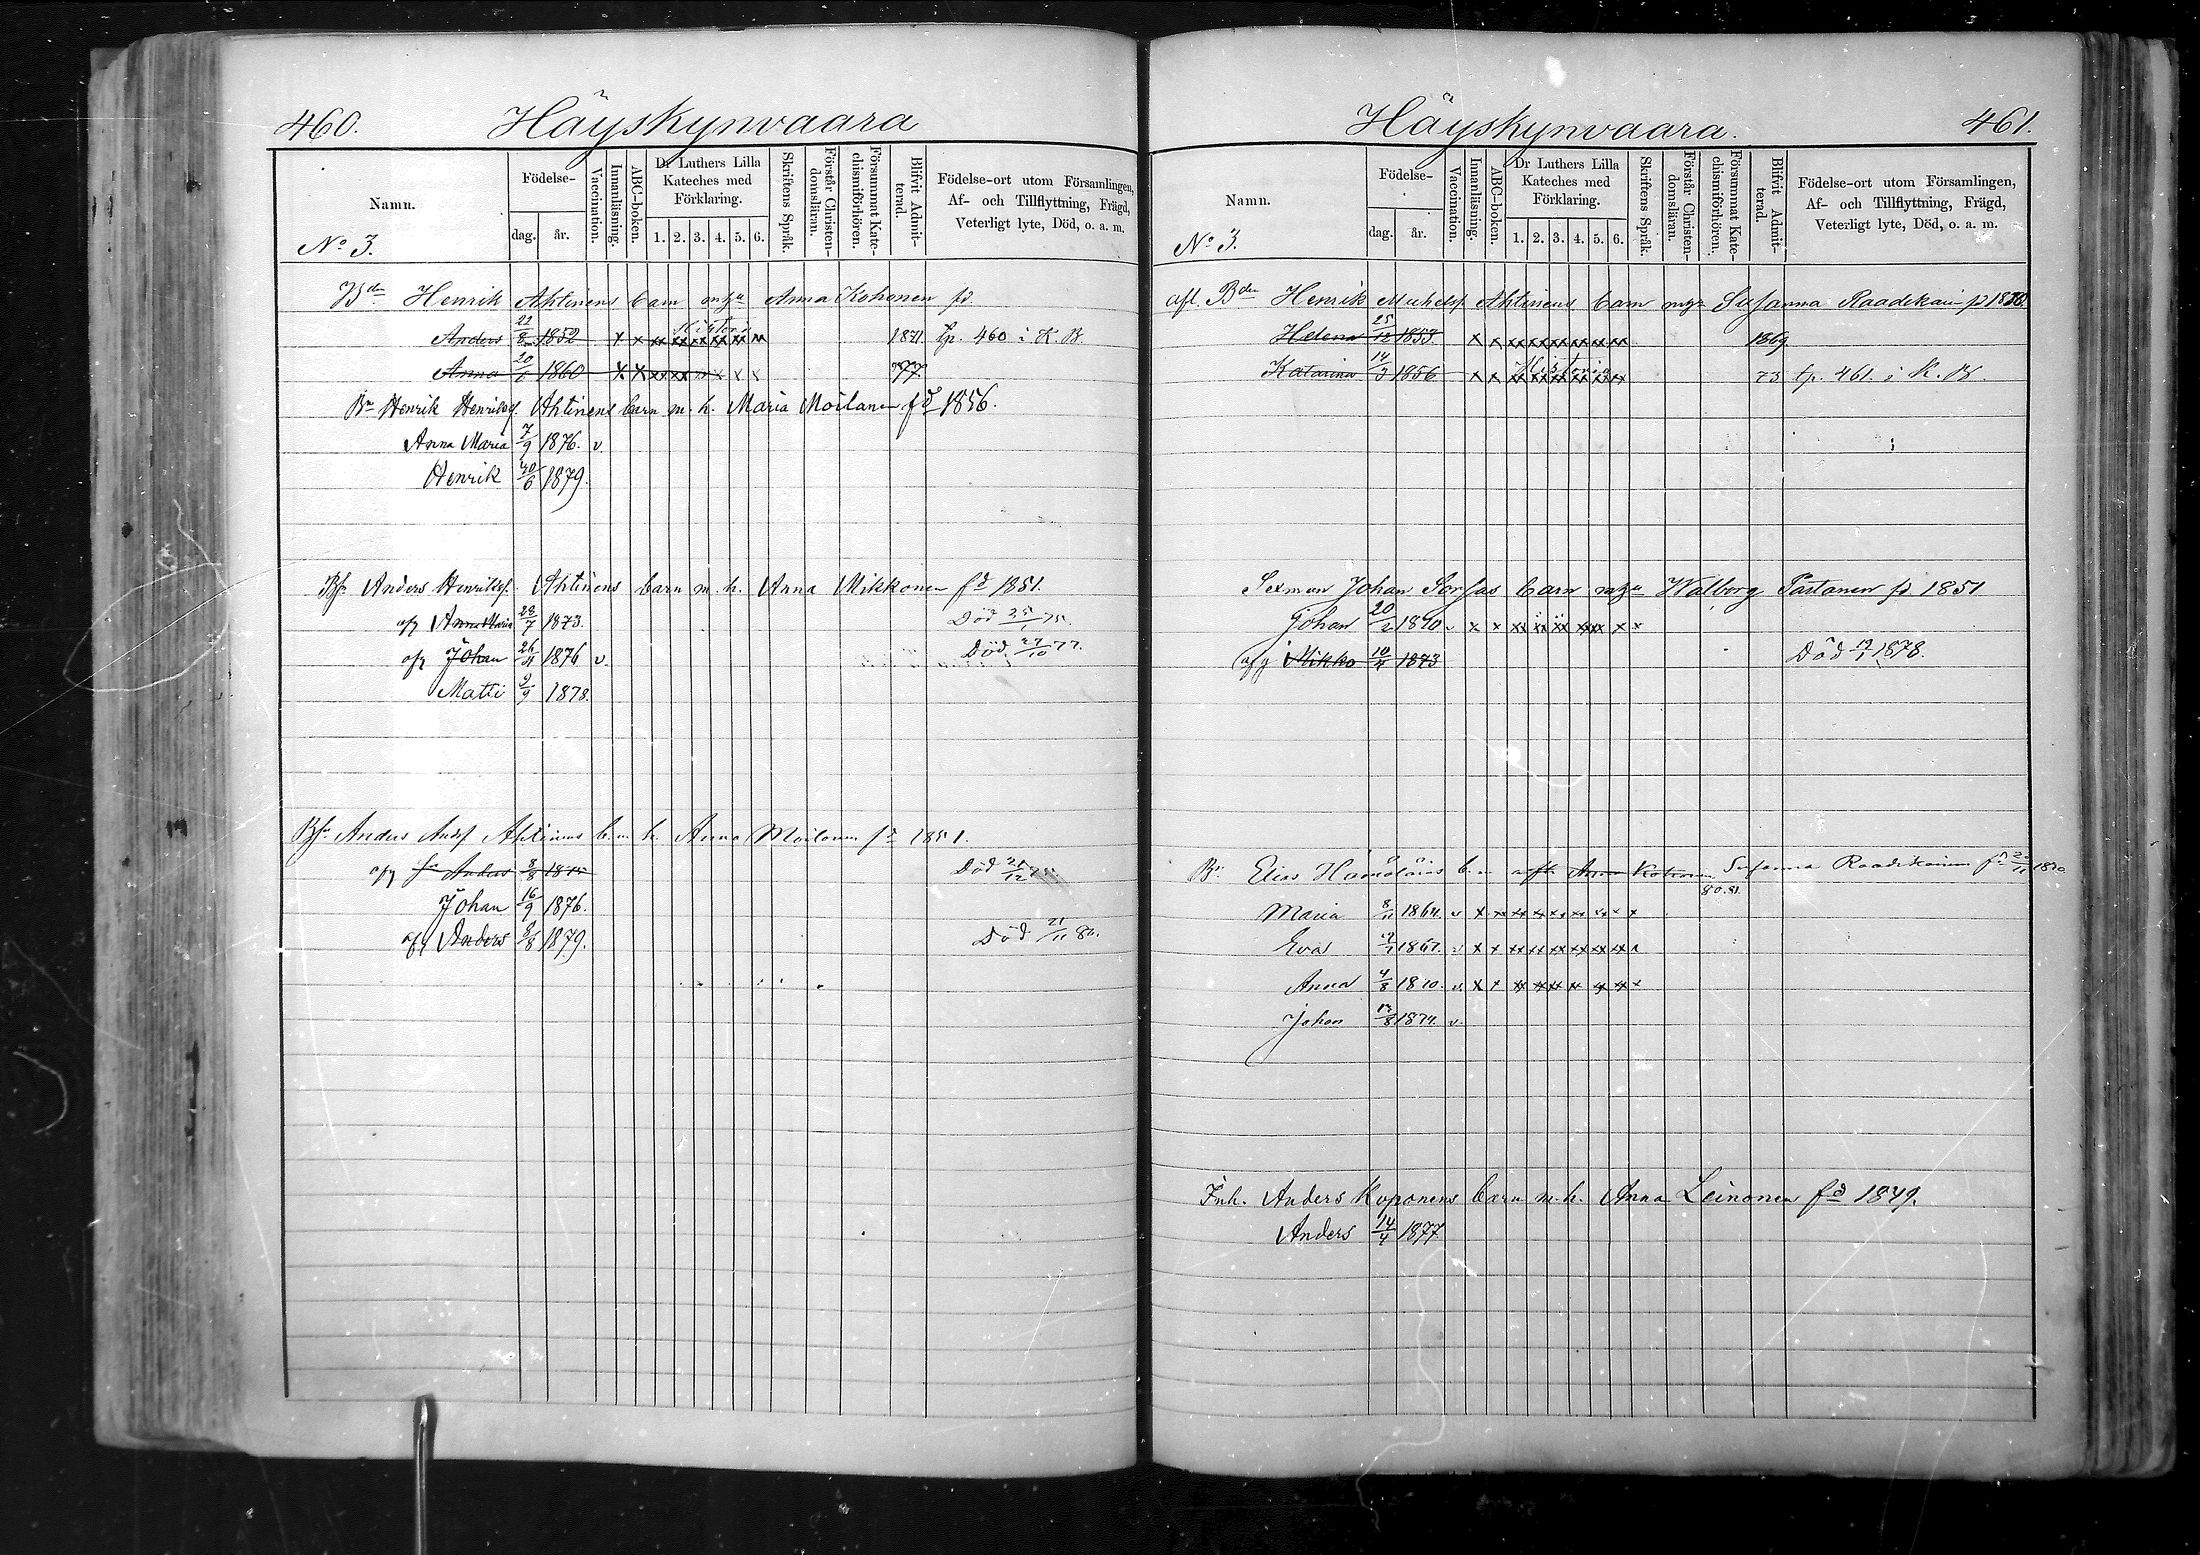 460.
Häyskynvaara
Namn.
Födelse-
dag.
år.
Vaccination.
Innanläsning.
ABC-boken.
Dr Luthers Lilla
Kateches med
Förklaring.
1. 2. 3. 4. 5. 6.
Skriftens Språk.
Förstår Christen-
domsläran.
Försummat Kate-
chismiförhören.
Blifvit Admit-
terad.
Födelse-ort utom Församlingen,
Af- och Tillflyttning, Frägd,
Veterligt lyte, Död, o. a. m.
No 3.
Bdn Henrik Ahtinens barn Anna Kohonen fd
Anders 22/8 1852 x x xx xx xx xx xx 1871. tp. 460 i K. B.
Anna 20/6 1860 x x xx xx x x x 77.
Bn Henrik Henriksf. Ahtinens barn m. h. Maria Moilanen fd 1856.
Anna Maria 7/9 1876. v.
Henrik 1879.
Anders Henriksf. Ahtinens barn m. h. Anna Mikkonen fd 1851.
afg Anna Maria 28/7 1873. Död 75.
afg Johan 1876 v. Död 27/10 77.
Matti 9/9 1878.
Anders Andsf Ahtinens b. m. h. Anna Moilanen fd 1851.
afg Anders 8/8 Död
Johan 16/9 1876.
afg Anders 1879. Död 21/11 80.
Häyskynvaara.
461.
Namn.
Födelse-
dag.
år.
Vaccination.
Innanläsning.
ABC-boken.
Dr Luthers Lilla
Kateches med
Förklaring.
1. 2. 3. 4. 5. 6.
Skriftens Språk.
Förstår Christen-
domsläran.
Försummat Kate-
chismiförhören.
Blifvit Admit-
terad.
Födelse-ort utom Församlingen,
Af- och Tillflyttning, Frägd,
Veterligt lyte, Död, o. a. m.
No 3.
afl. Bdn Henrik Michelsf Ahtinens barn Susanna Raadikain fd
Helena 25/12 1853 x x xx xx xx xx xx 1869.
Katarina 14/3 1856 x x xx xx xx xx xx 73 tp. 461 i K. B.
Johan Sorsas barn Walborg Partanen fd 1851
Johan 20/2 1870 v x x xx xx xx xx x x
afg Mikko 10/4 1873 Död 1878.
Bn Elias b. m. Anna Kohonen Susanna Raadikainen fd
80.81.
Maria 8/11 1864. v x
Eva 1867. v x x
Anna 4/8 1870. v. x x
Johan 1874. v.
Inh. Anders Koponens barn m. h. Anna Leinonen fd 1849.
Anders 14/4 1877